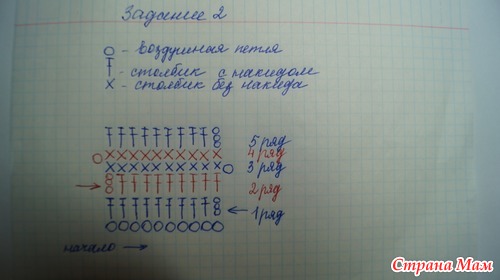 Задание 2
О - воздушная петля
† - столбик с накидом
× - столбик без накида
5 ряд
4 ряд
3 ряд
2 ряд
1 ряд
начало →
Страна Мам